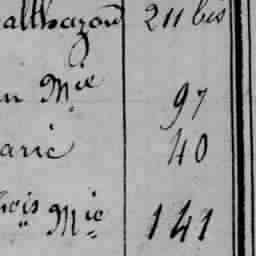 althazard 211 bis
n Mie 97
arie 40
çois Mie 141